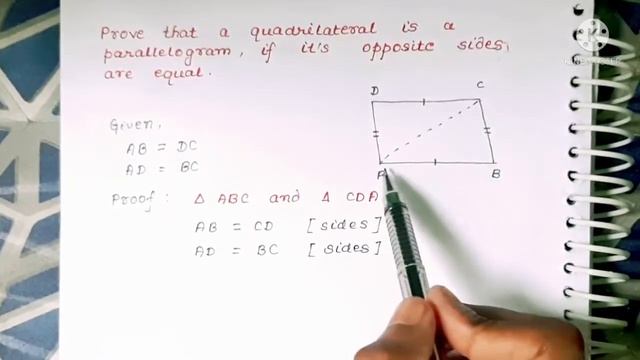 Prove that a quadrilateral is a
parallelogram, if it's opposite sides,
are equal.
D
C
Given,
AB = DC
AD = BC
A
B
Proof : △ ABC and △ CDA
AB = CD [sides]
AD = BC [sides]